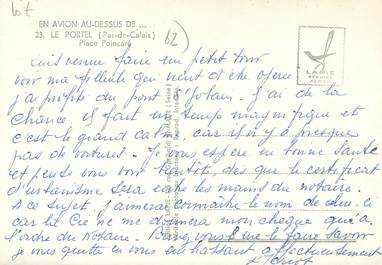 lot
EN AVION AU-DESSUS DE ...
23. LE PORTEL (Pas-de-Calais)
Place Poincaré
62
LAPIE
SERVICE
AERIEN
Suis venue faire un petit tour
voir ma filleule qui vient d'être opérée
j'ai profité du pont J'ai de la
chance. Il fait un temps magnifique et
c'est le grand calme, car il n'y a presque
pas de voitures. Je vous espère en bonne santé
et pense vous voir bientôt, dès que le certificat
d'urbanisme sera entre les mains du notaire.
A ce sujet, j'aimerai connaître le nom de celui-ci
car la Cie ne me donnera mon chèque qu'à
l'ordre du Notaire. vous me le faire savoir
Je vous quitte en vous embrassant affectueusement